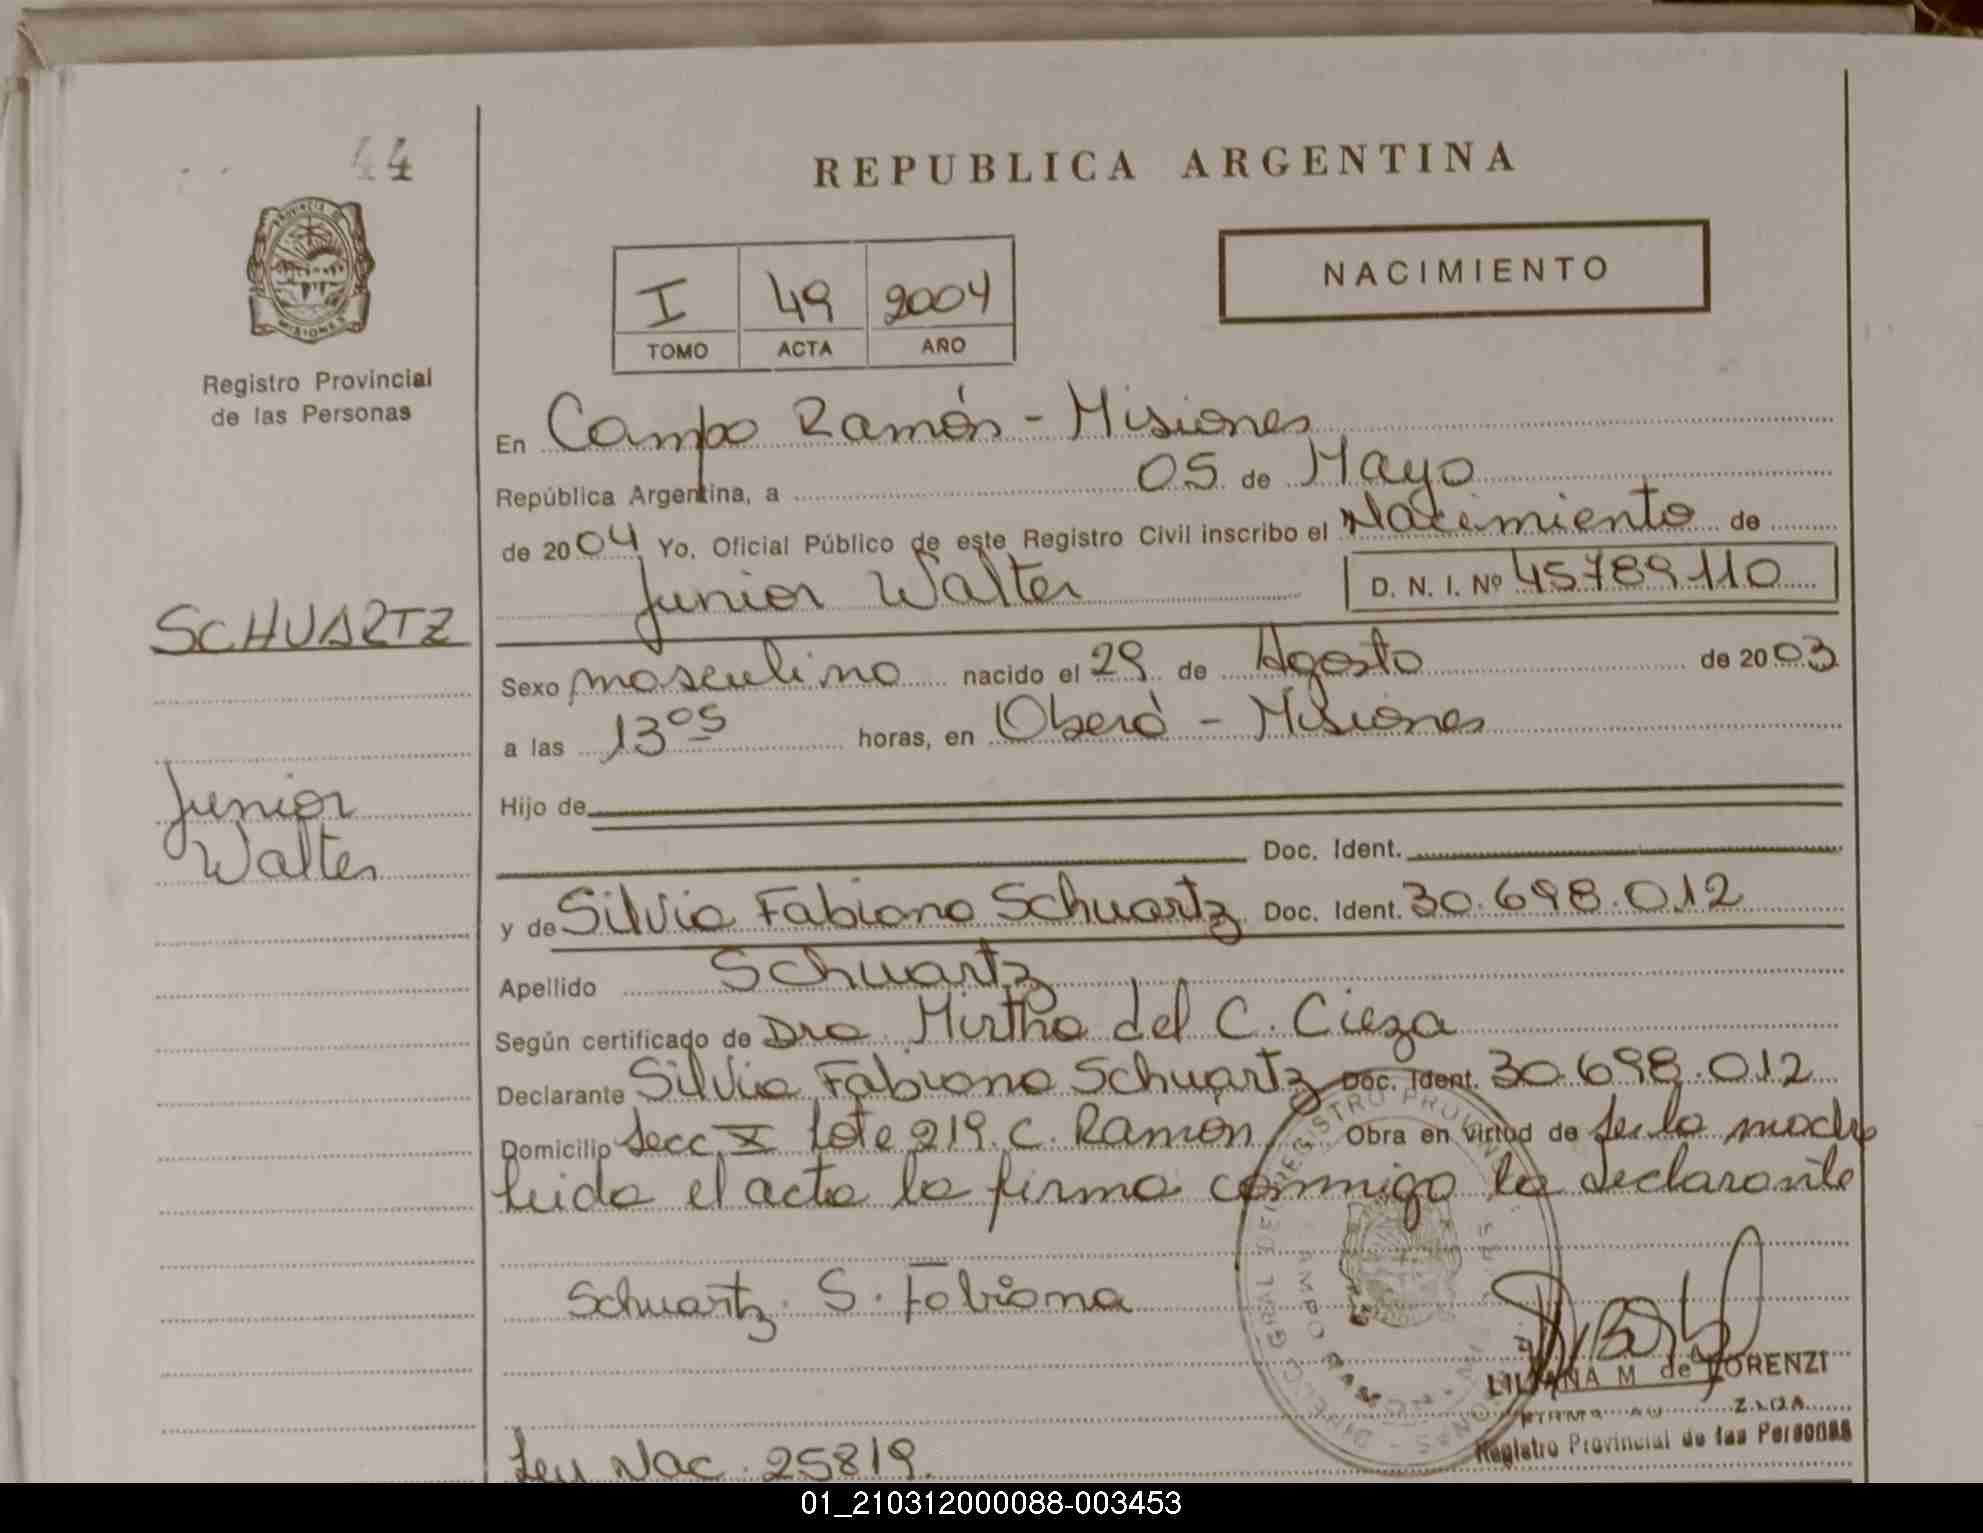 44
REPUBLICA ARGENTINA
PROVINCIA DE
MISIONES
Registro Provincial
de las Personas
I 49 2004
TOMO ACTA AÑO
NACIMIENTO
En Campo Ramón - Misiones
República Argentina, a 05 de Mayo
de 2004 Yo, Oficial Público de este Registro Civil inscribo el Nacimiento de
Junior Walter D. N. I. Nº 45789110
SCHUARTZ
Junior
Walter
Sexo masculino nacido el 29 de Agosto de 2003
a las 13 05 horas, en Oberá - Misiones
Hijo de
Doc. Ident.
y de Silvia Fabiana Schuartz Doc. Ident. 30.698.012
Apellido Schuartz
Según certificado de Dra. Mirtha del C. Cieza
Declarante Silvia Fabiana Schuartz Doc. Ident. 30.698.012
Domicilio Secc X Lote 219. C. Ramón Obra en virtud de ser la madre
leida el acta la firma conmigo la declarante
Schuartz. S. Fabiana
LILIANA M de LORENZI
Registro Provincial de las Personas
Ley Nac. 25819.
01_210312000088-003453